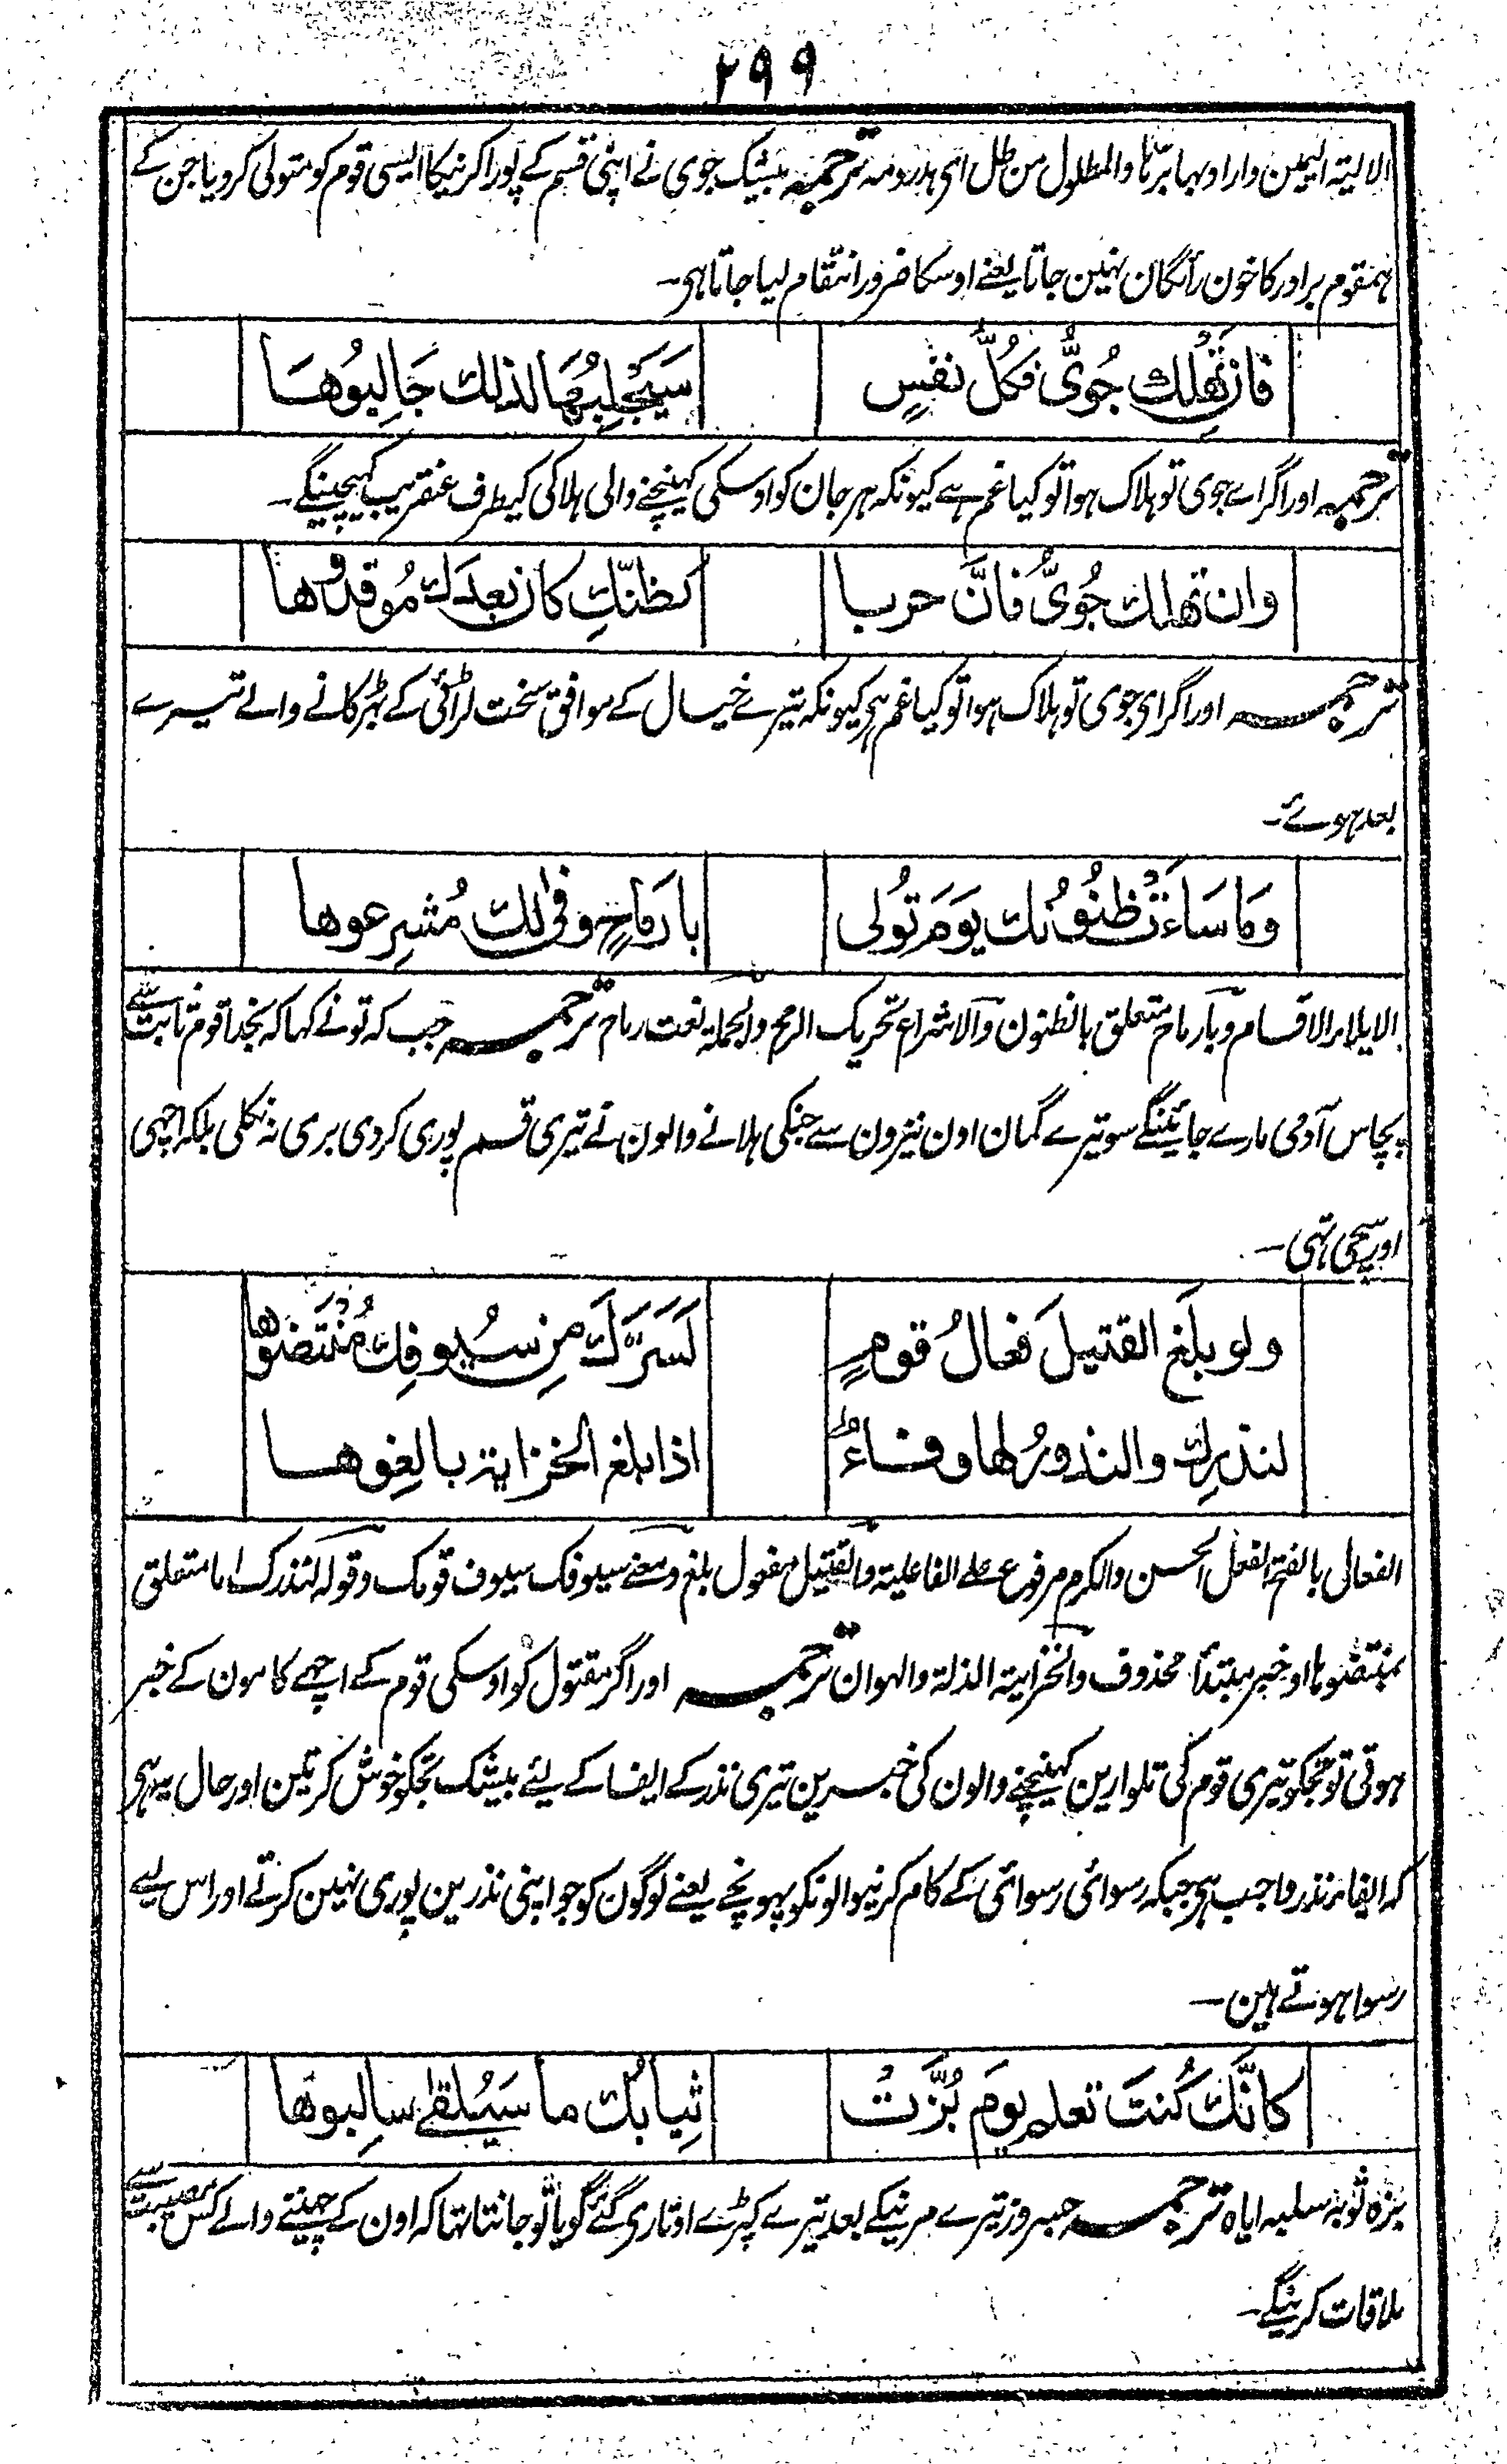 ۲۹۹
الالیتہ الیمین واراد بہا برّہا والمطلول من طل ای ہدر دمہ ترجمہ بیشک جوی نے اپنی قسم کے پورا کرنیکا ایسی قوم کو متولی کردیا جن کے
ہمقوم برادر کا خون رائگان نہین جاتا یعنے اوسکا ضرور انتقام لیا جاتا ہی۔
فان تَهْلِك جُوَيُّ فكُلُّ نفسٍ سَيَجْلِبُهَا لذلك جَالِبُوهَا
ترجمہ اور اگر اے جوی تو ہلاک ہوا تو کیا غم ہے کیونکہ ہر جان کو اوسکی کہینچنے والی ہلاکی کیطرف عنقریب کہیچینگے۔
وان تهلك جُوَيُّ فَانَّ حربا كظنّكِ كان بعدَك مُوقدوها
ترجمہ اور اگر ای جوی تو ہلاک ہوا تو کیا غم ہی کیونکہ تیرے خیال کے موافق سخت لڑائی کے بہڑکانے والے تیرے
بعد ہوئے۔
وَمَا سَاءَتْ ظنُونُك يَوْمَ تُولى بارمَاحٍ وفى لك مُشرِعوها
الایلاء الاقسام وبارماح متعلق بالظنون والاشراع تحریک الرمح والجملۃ نعت رماح ترجمہ جب کہ تونے کہا کہ بخدا قوم ثابت سے
پچاس آدمی مارے جائینگے سو تیرے گمان اون نیزون سے جنکی ہلانے والون نے تیری قسم پوری کردی بری نہ نکلی بلکہ اچہی
اور سچی تہی۔
ولو بلَغ القتيلَ فعالُ قومٍ لَسَرَّكَ مِن سُيوفِك مُنْتَضُوها
لنذرِك والنذورُ لها وفاءٌ اذا بلغ الخزاية بالِغوها
الفعال بالفتح الفعل الحسن والکرم مرفوع علے الفاعلیۃ والقتیل مفعول بلغ ومعنے سیوفک سیوف قومک وقولہ لنذرک اما متعلق
بمنتضوہا او خبر مبتدأ محذوف والخزایۃ الذلۃ والہوان ترجمہ اور اگر مقتول کو اوسکی قوم کے اچہے کامون کے خبر
ہوتی تو تجکو تیری قوم کی تلوارین کہینچنے والون کی خبرین تیری نذر کے ایفا کے لیئے بیشک تجکو خوش کرتین اور حال یہ ہی
کہ ایفاء نذر واجب ہی جبکہ رسوائی رسوائی کے کام کرنیوالونکو پہونچے یعنے لوگون کو جو اپنی نذرین پوری نہین کرتے اور اس لیے
رسوا ہوتے ہین۔
كانَّك كُنتَ تعلم يومَ بُزَّتْ ثِيابُك ما سَيَلقى سالِبوها
بزہ ثوبہ سلبہ ایاہ ترجمہ جسروز تیرے مرنیکے بعد تیرے کپڑے اوتاری گئے گویا تو جانتا تہا کہ اون کے چہینے والے کس مصیبت سے
ملاقات کرینگے۔